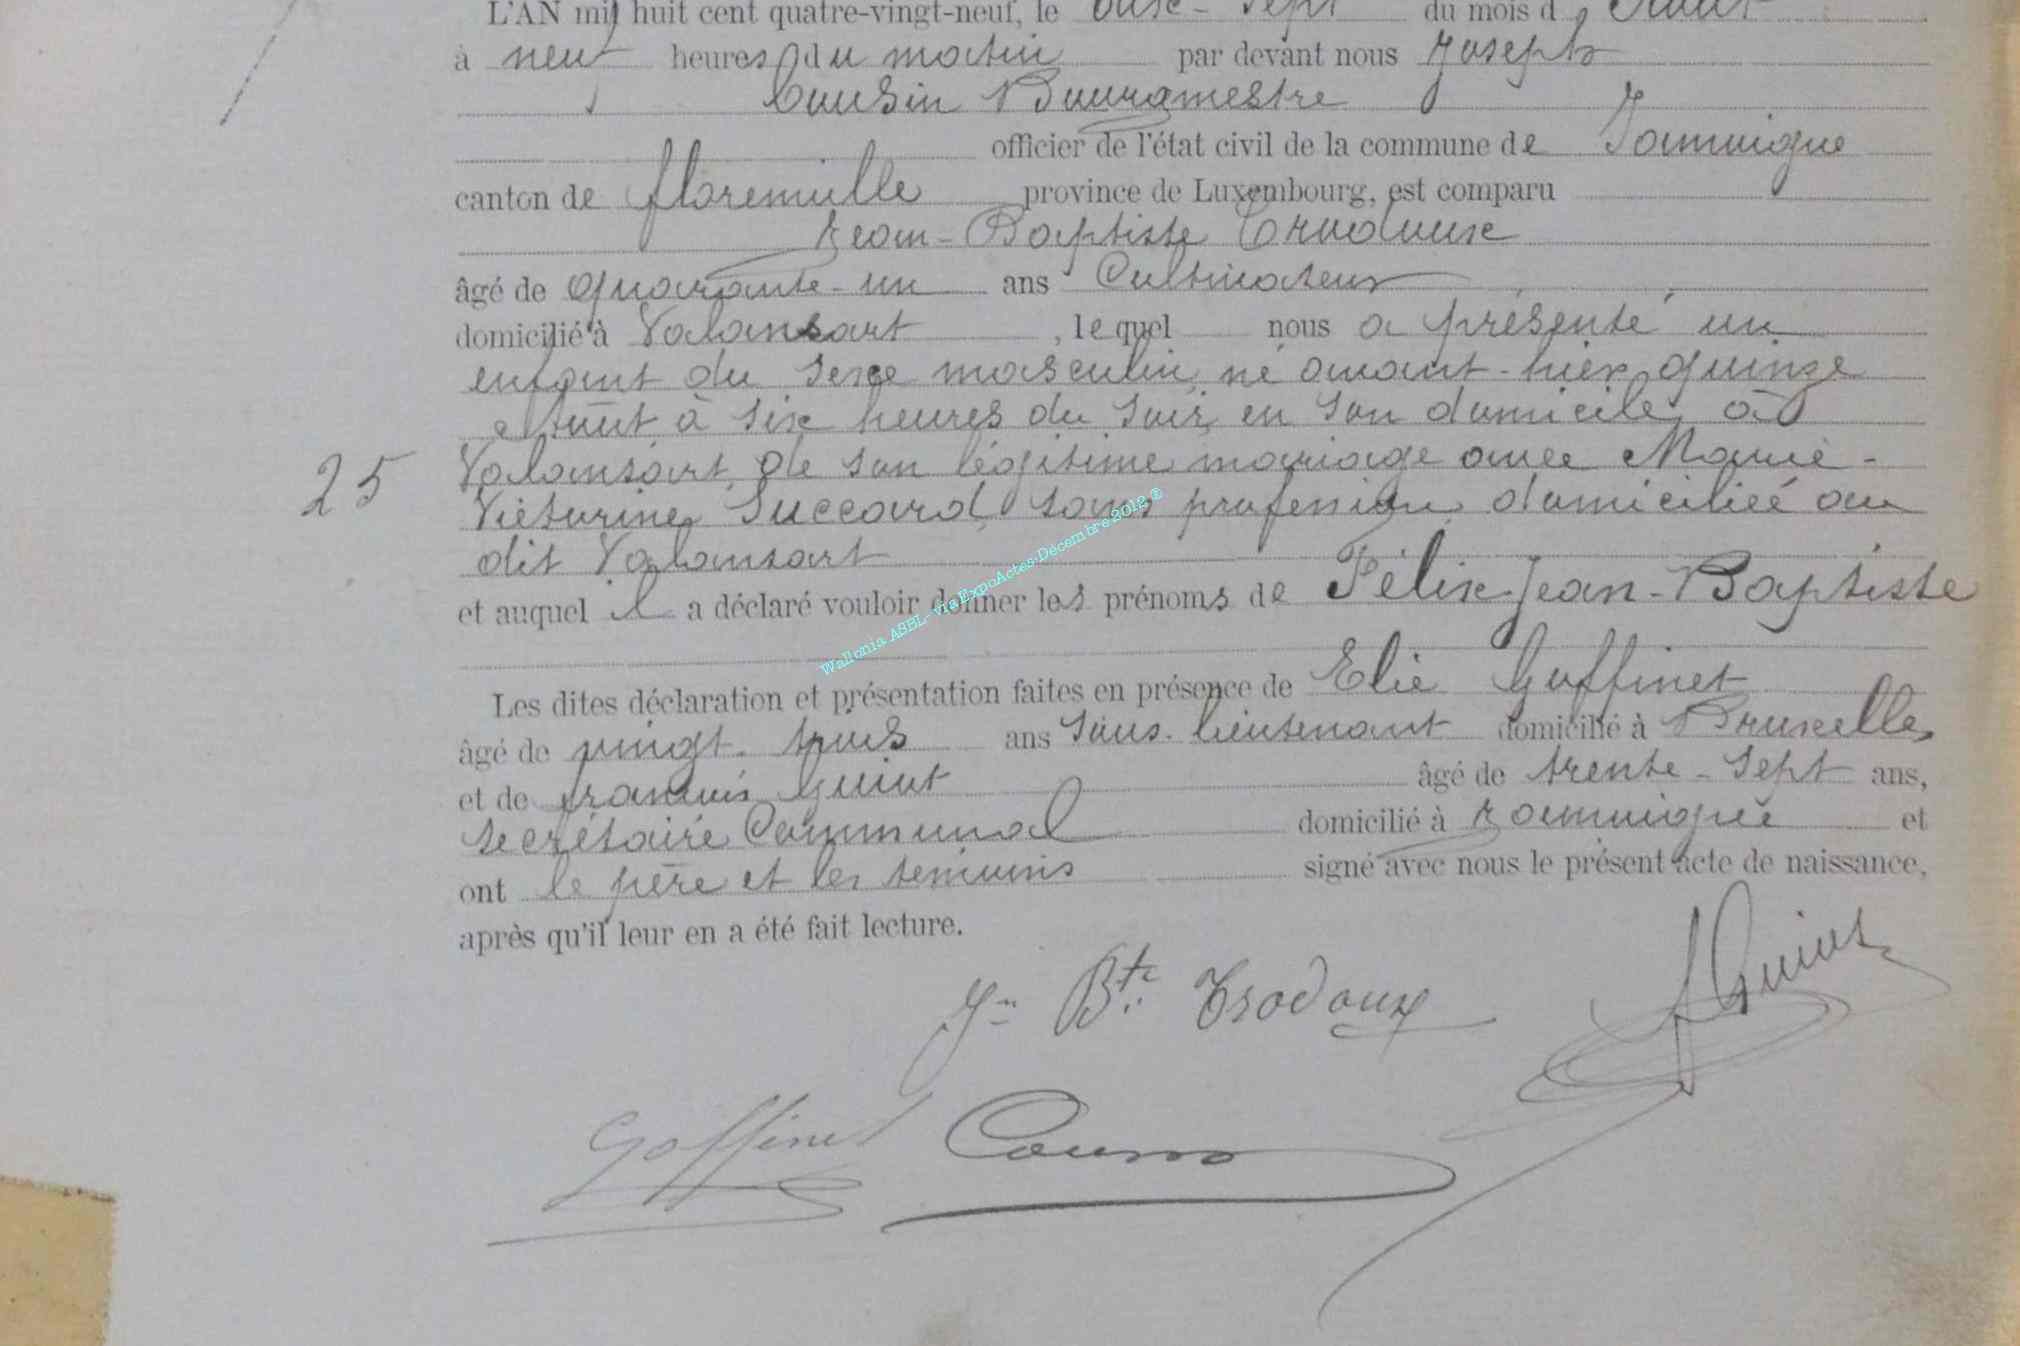 L'AN mil huit cent quatre-vingt-neuf, le dix-sept du mois d'Août
à neuf heures du matin par devant nous Joseph
Cousin Bourgmestre
officier de l'état civil de la commune de Jamoigne
canton de florenville province de Luxembourg, est comparu
Jean-Baptiste Trodoux
âgé de quarante-un ans Cultivateur
domicilié à Valansart, lequel nous a présenté un
enfant du sexe masculin né avant-hier quinze
août à six heures du soir en son domicile à
25 Valansart, de son légitime mariage avec Marie-
Victorine Succard sans profession domiciliée au
dit Valansart
et auquel il a déclaré vouloir donner les prénoms de Félix-Jean-Baptiste
Wallonia ASBL- via ExpoActes-Décembre 2012 ®
Les dites déclaration et présentation faites en présence de Elie Goffinet
âgé de vingt-trois ans Sous-lieutenant domicilié à Bruxelles
et de françois Guiot âgé de trente-sept ans,
secrétaire Communal domicilié à Jamoigne et
ont le père et les témoins signé avec nous le présent acte de naissance,
après qu'il leur en a été fait lecture.
Jn Bte Trodoux
f Guiot
Goffinet Cousin